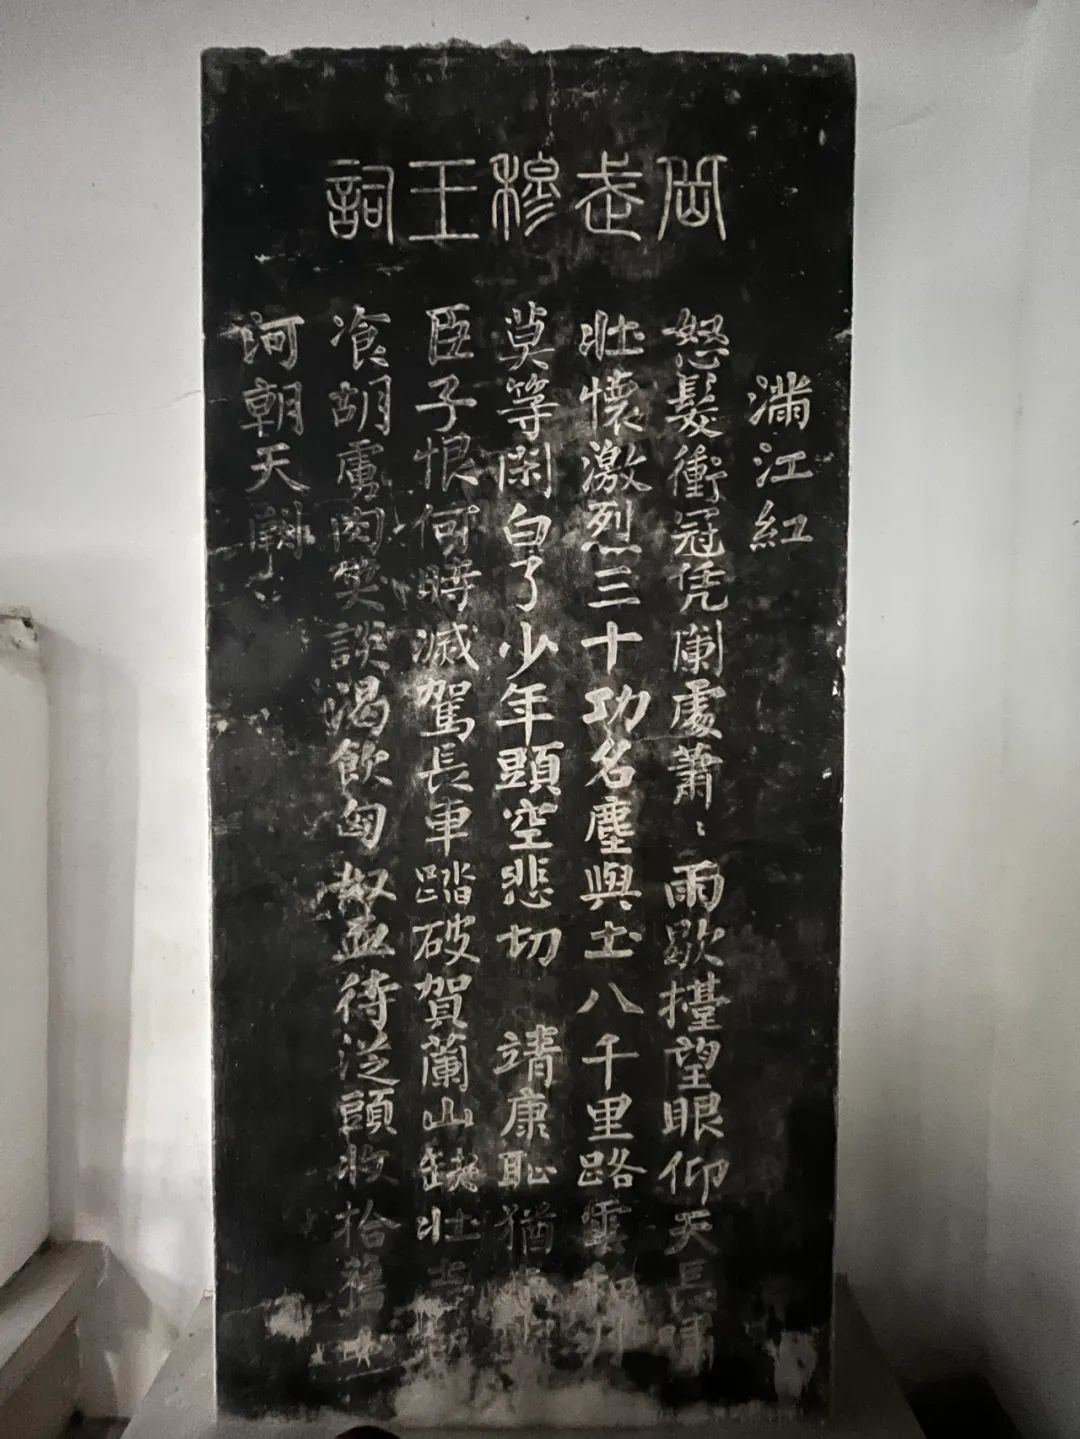 岳武穆王詞
滿江紅
怒髮衝冠凭闌處蕭〻雨歇擡望眼仰天長嘯
壯懷激烈三十功名塵與土八千里路雲和月
莫等閑白了少年頭空悲切 靖康恥猶
臣子恨何時滅駕長車踏破賀蘭山缺壯志
飡胡虜肉笑談渴飲匈奴血待從頭收拾舊山
河朝天闕